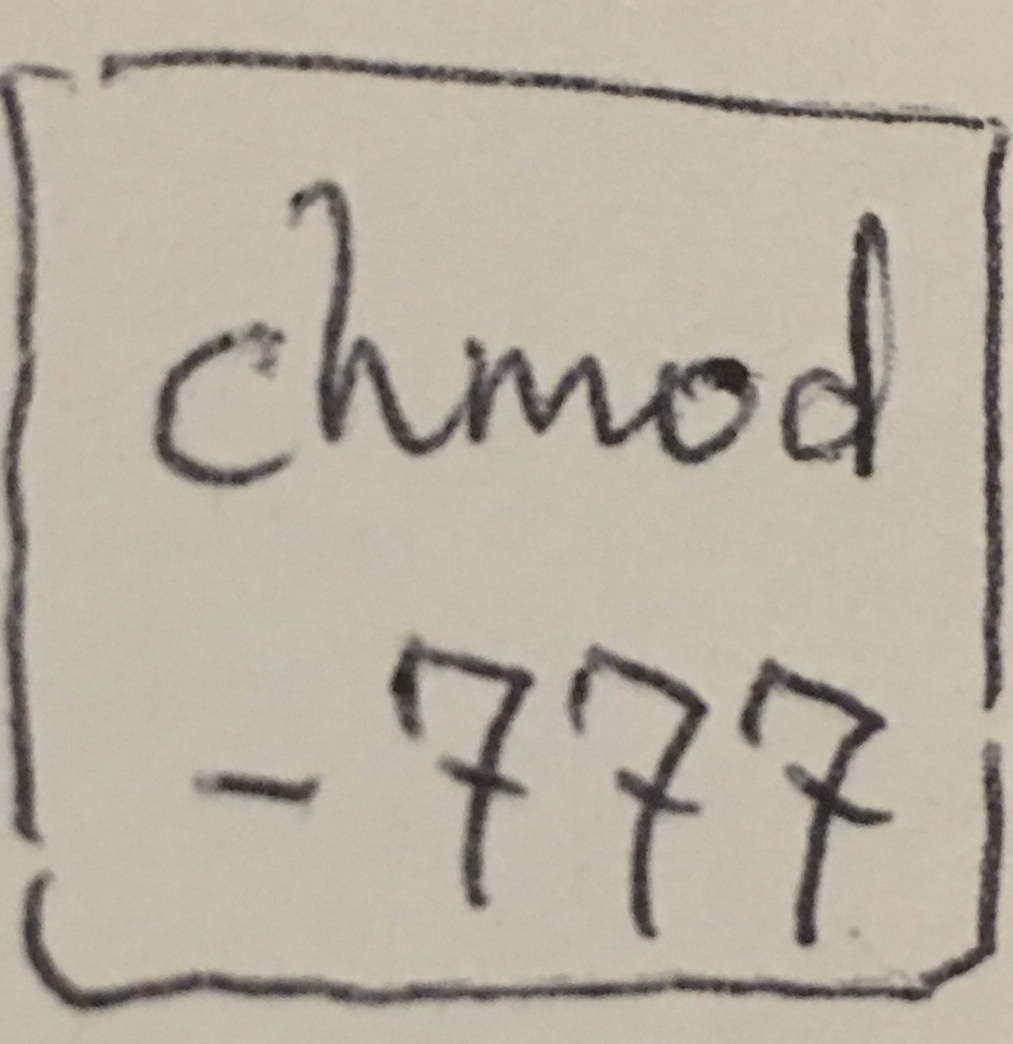 chmod
-777